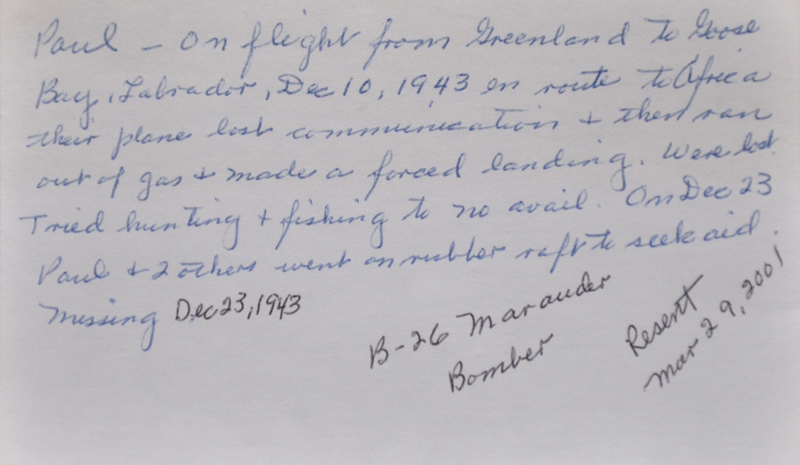 Paul - On flight from Greenland to Goose
Bay, Labrador, Dec 10, 1943 en route to Africa
their plane lost communication + then ran
out of gas + made a forced landing. Were lost
Tried hunting + fishing to no avail. On Dec 23
Paul + 2 others went on rubber raft to seek aid.
Missing Dec 23, 1943
B-26 Marauder
Bomber
Resent
Mar 29, 2001